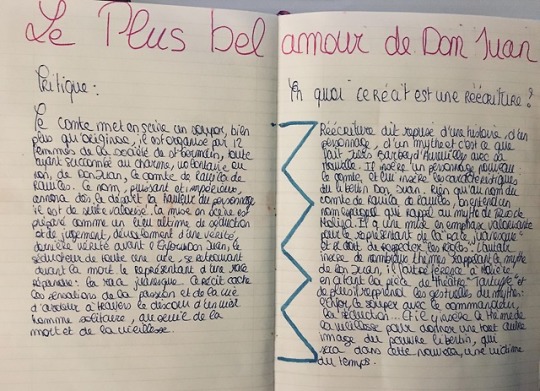 Le Plus bel amour de Don Juan
Critique :
Le conte met en scène un souper, bien
plus qu'original, il est organisé par 12
femmes de la société de st Germain, toute
ayant succombé au charme, volontaire ou
non, de Don Juan, le comte de Ravila de
Ravilès. Ce nom, puissant et mystérieux,
annonce dès le départ la hauteur du personnage
il est de petite valeur. la mise en scène est
préparé comme un lieu ultime de séduction
et de jugement, dévoilement d'une vérité,
dernière vérité avant l'Enfer. Don Juan, le
séducteur de toute une vie, se retrouvant
devant la mort le représentant d'une race
répandue : la race juanique. Ce récit cache
les sensations de la passion et de la vie
d'orateur à travers le discours d'un vieil
homme solitaire, au seuil de la
mort et de la vieillesse.
En quoi ce récit est une réécriture ?
Réécriture dit reprise d'une histoire, d'un
personnage, d'un mythe et c'est ce que
fait Jules Barbey d'Aurevilly avec sa
nouvelle. Il insère un personnage nouveau :
le comte, et lui insère les caractéristiques
du libertin Don Juan. Rien qu'au nom du
comte de Ravila de Ravilès, on entend un
nom espagnol qui rappel au mythe de Tirso de
Molina. Il y a une mise en emphase valorisante
pour le représentant de la race "juanique"
et se doit de respecter "les Rocks". L'auteur
insère de nombreux thèmes rappelant le mythe
de Don Juan, il fait référence à Molière
en citant la pièce de théâtre "Tartuffe" et
de plus il reprend les gestuelles du mythe :
l'échec, le souper avec le commandeur,
la séduction... Et il y insère le thème de
la vieillesse pour donner une tout autre
image du pauvre libertin, qui
sera dans cette nouvelle, une victime
du temps.